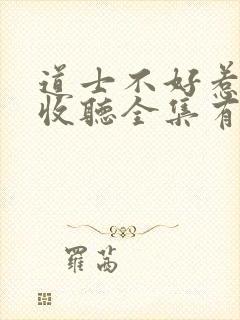 道士不好惹
收聽全集有
羅茜